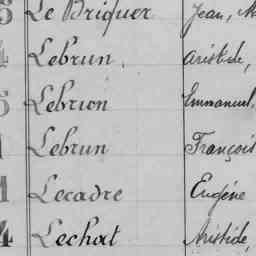 5 Le Briquer Jean, M
4 Lebrun, Aristide,
5 Lebrion Emmanuel,
1 Lebrun François
1 Lecadre Eugène
4 Lechat Aristide,